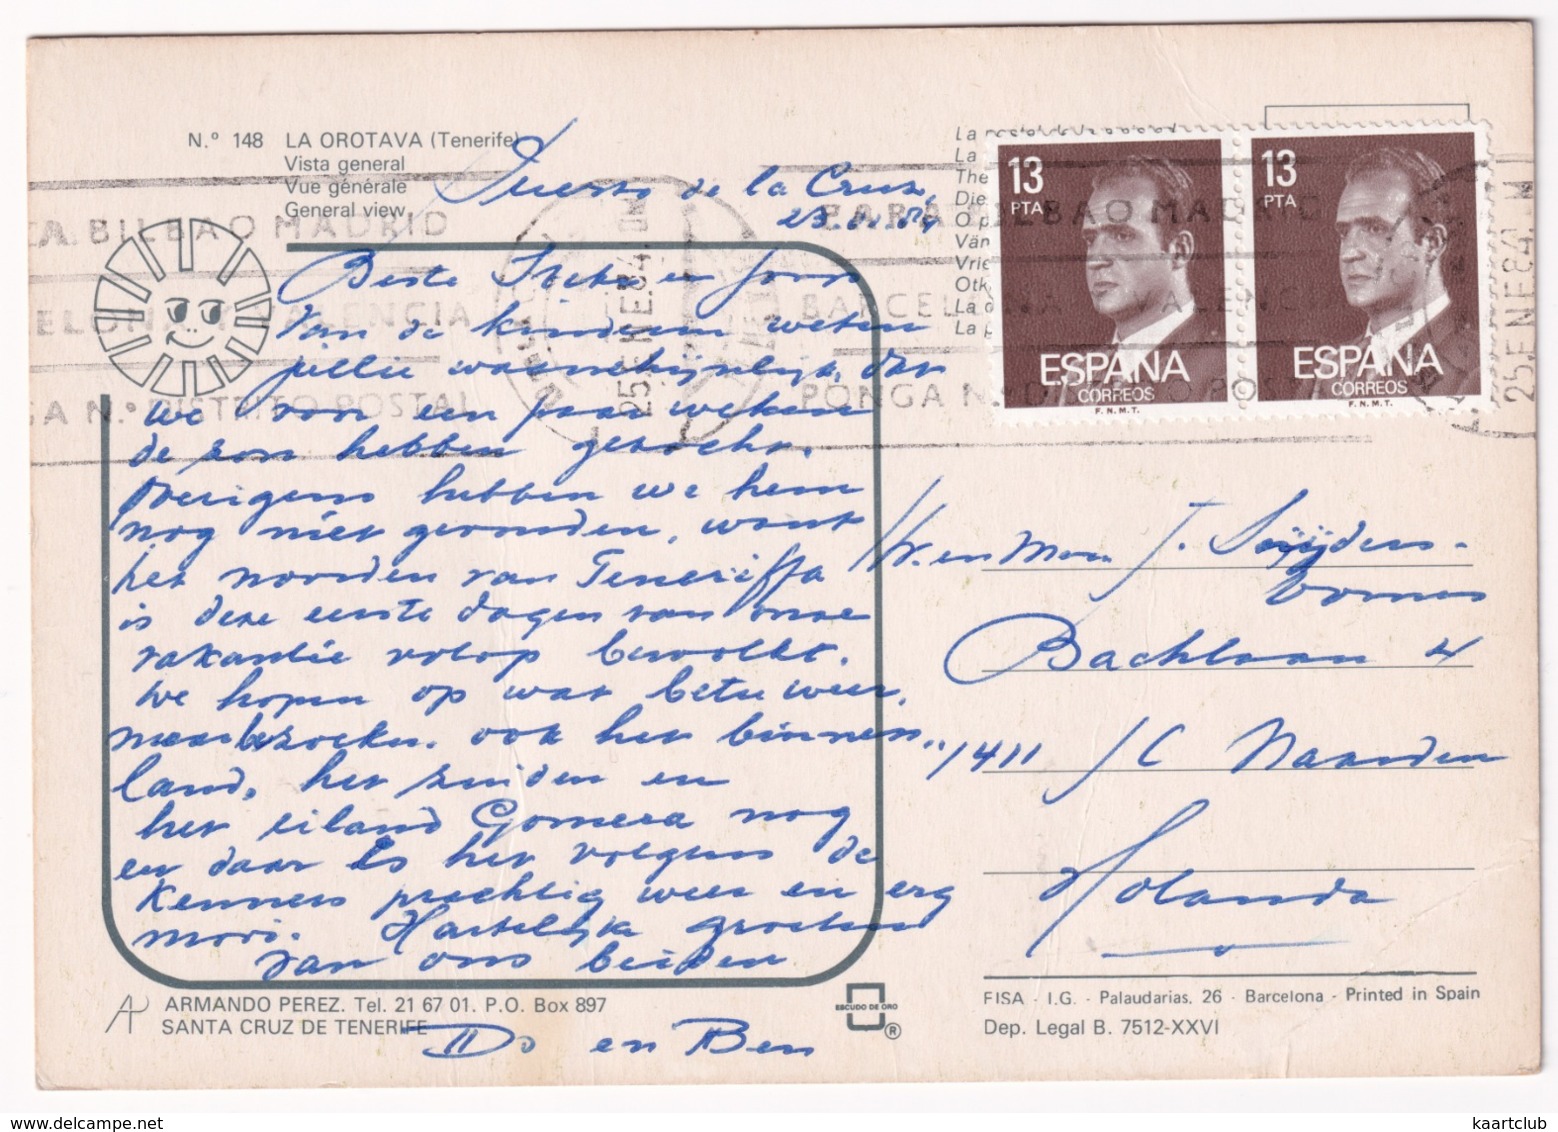 N.º 148 LA OROTAVA (Tenerife)
Vista general
Vue générale
General view
Puerto de la Cruz,
Beste en Joop
Van de kinderen weten
jullie waarschijnlijk, dat
we voor een paar weken
de zon hebben gezocht.
Overigens hebben we hem
nog niet gevonden, want
het noorden van Teneriffa
is deze eerste dagen van onze
vakantie volop bewolkt.
We hopen op wat beter weer,
maar bezoeken ook het binnen
land, het zuiden en
het eiland Gomera nog
en daar is het volgens de
kenners prachtig weer en erg
mooi. Hartelijke groeten
van ons beiden
Do en Ben
ARMANDO PEREZ. Tel. 21 67 01. P.O. Box 897
SANTA CRUZ DE TENERIFE
ESCUDO DE ORO
®
13
PTA
ESPAÑA
CORREOS
F.N.M.T.
13
PTA
ESPAÑA
CORREOS
F.N.M.T.
BILBAO MADRID
VALENCIA
DISTRITO POSTAL
25 ENE 84
PARA BILBAO MADRID
BARCELONA VALENCI
PONGA N.º DISTRITO POST
25 ENE 84
La
La
The
Die
O p
Vän
Vrie
Otk
La
La
Hr. en Mevr. J. Snijders-
Bachlaan 4
1411 Naarden
Holanda
FISA - I.G. - Palaudarias, 26 - Barcelona - Printed in Spain
Dep. Legal B. 7512-XXVI
kaartclub